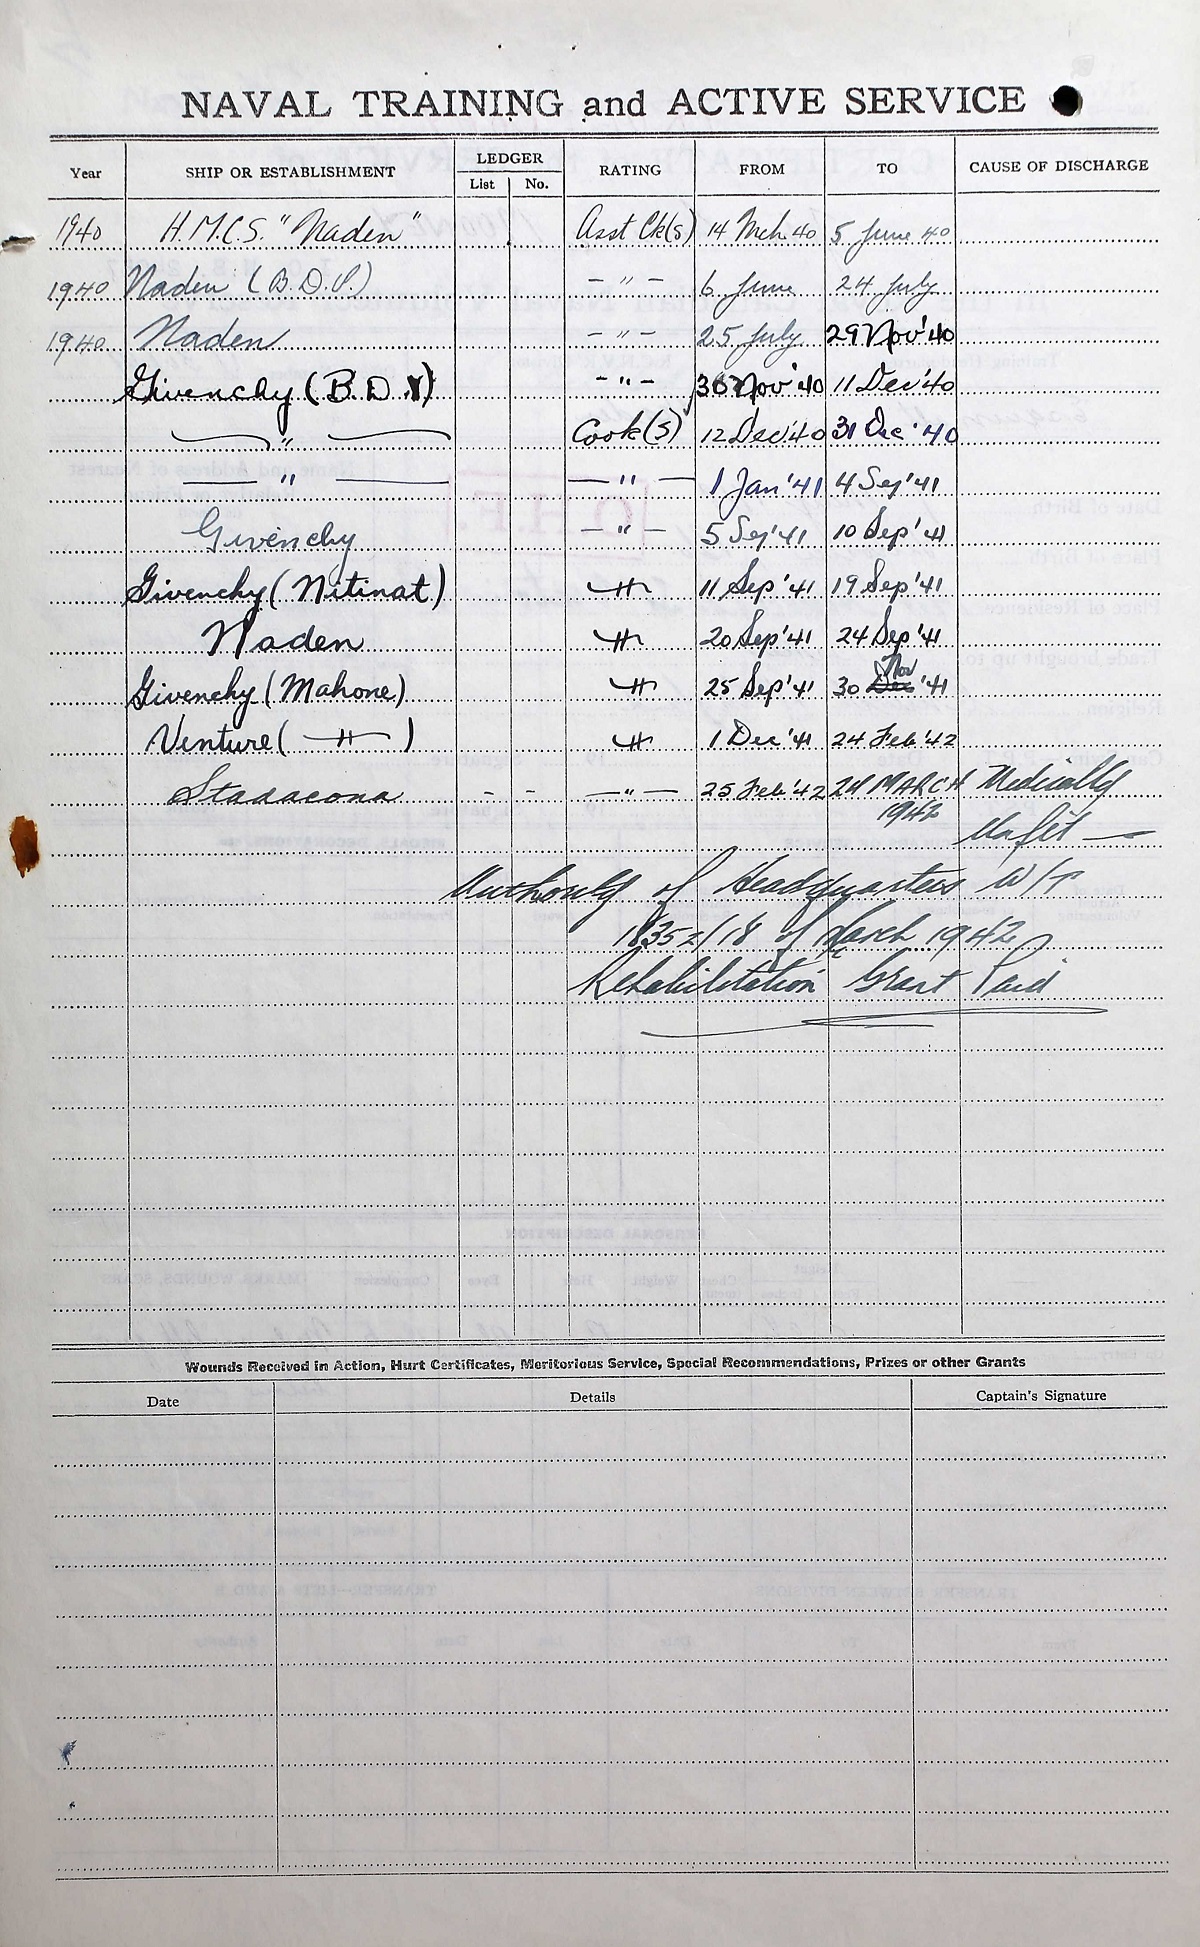 NAVAL TRAINING and ACTIVE SERVICE
Year SHIP OR ESTABLISHMENT LEDGER List No. RATING FROM TO CAUSE OF DISCHARGE
1940 H.M.C.S. "Naden" Asst Ck(s) 14 Mch 40 5 June 40
1940 Naden (B.D.V.) - " - 6 June 24 July
1940 Naden - " - 25 July 29 Nov '40
Givenchy (B.D.V) - " - 30 Nov '40 11 Dec '40
— " — Cook(s) 12 Dec '40 31 Dec '40
— " — — " — 1 Jan '41 4 Sep '41
Givenchy — " — 5 Sep '41 10 Sep '41
Givenchy (Nitinat) —"— 11 Sep '41 19 Sep '41
Naden —"— 20 Sep '41 24 Sep '41
Givenchy (Mahone) —"— 25 Sep '41 30 Nov '41
Venture ( —"— ) —"— 1 Dec '41 24 Feb '42
Stadacona - - —"— 25 Feb '42 24 MARCH 1942 Medically
Unfit —
Authority of Headquarters W/T
1835z/18 of March 1942
Rehabilitation Grant Paid
Wounds Received in Action, Hurt Certificates, Meritorious Service, Special Recommendations, Prizes or other Grants
Date Details Captain's Signature